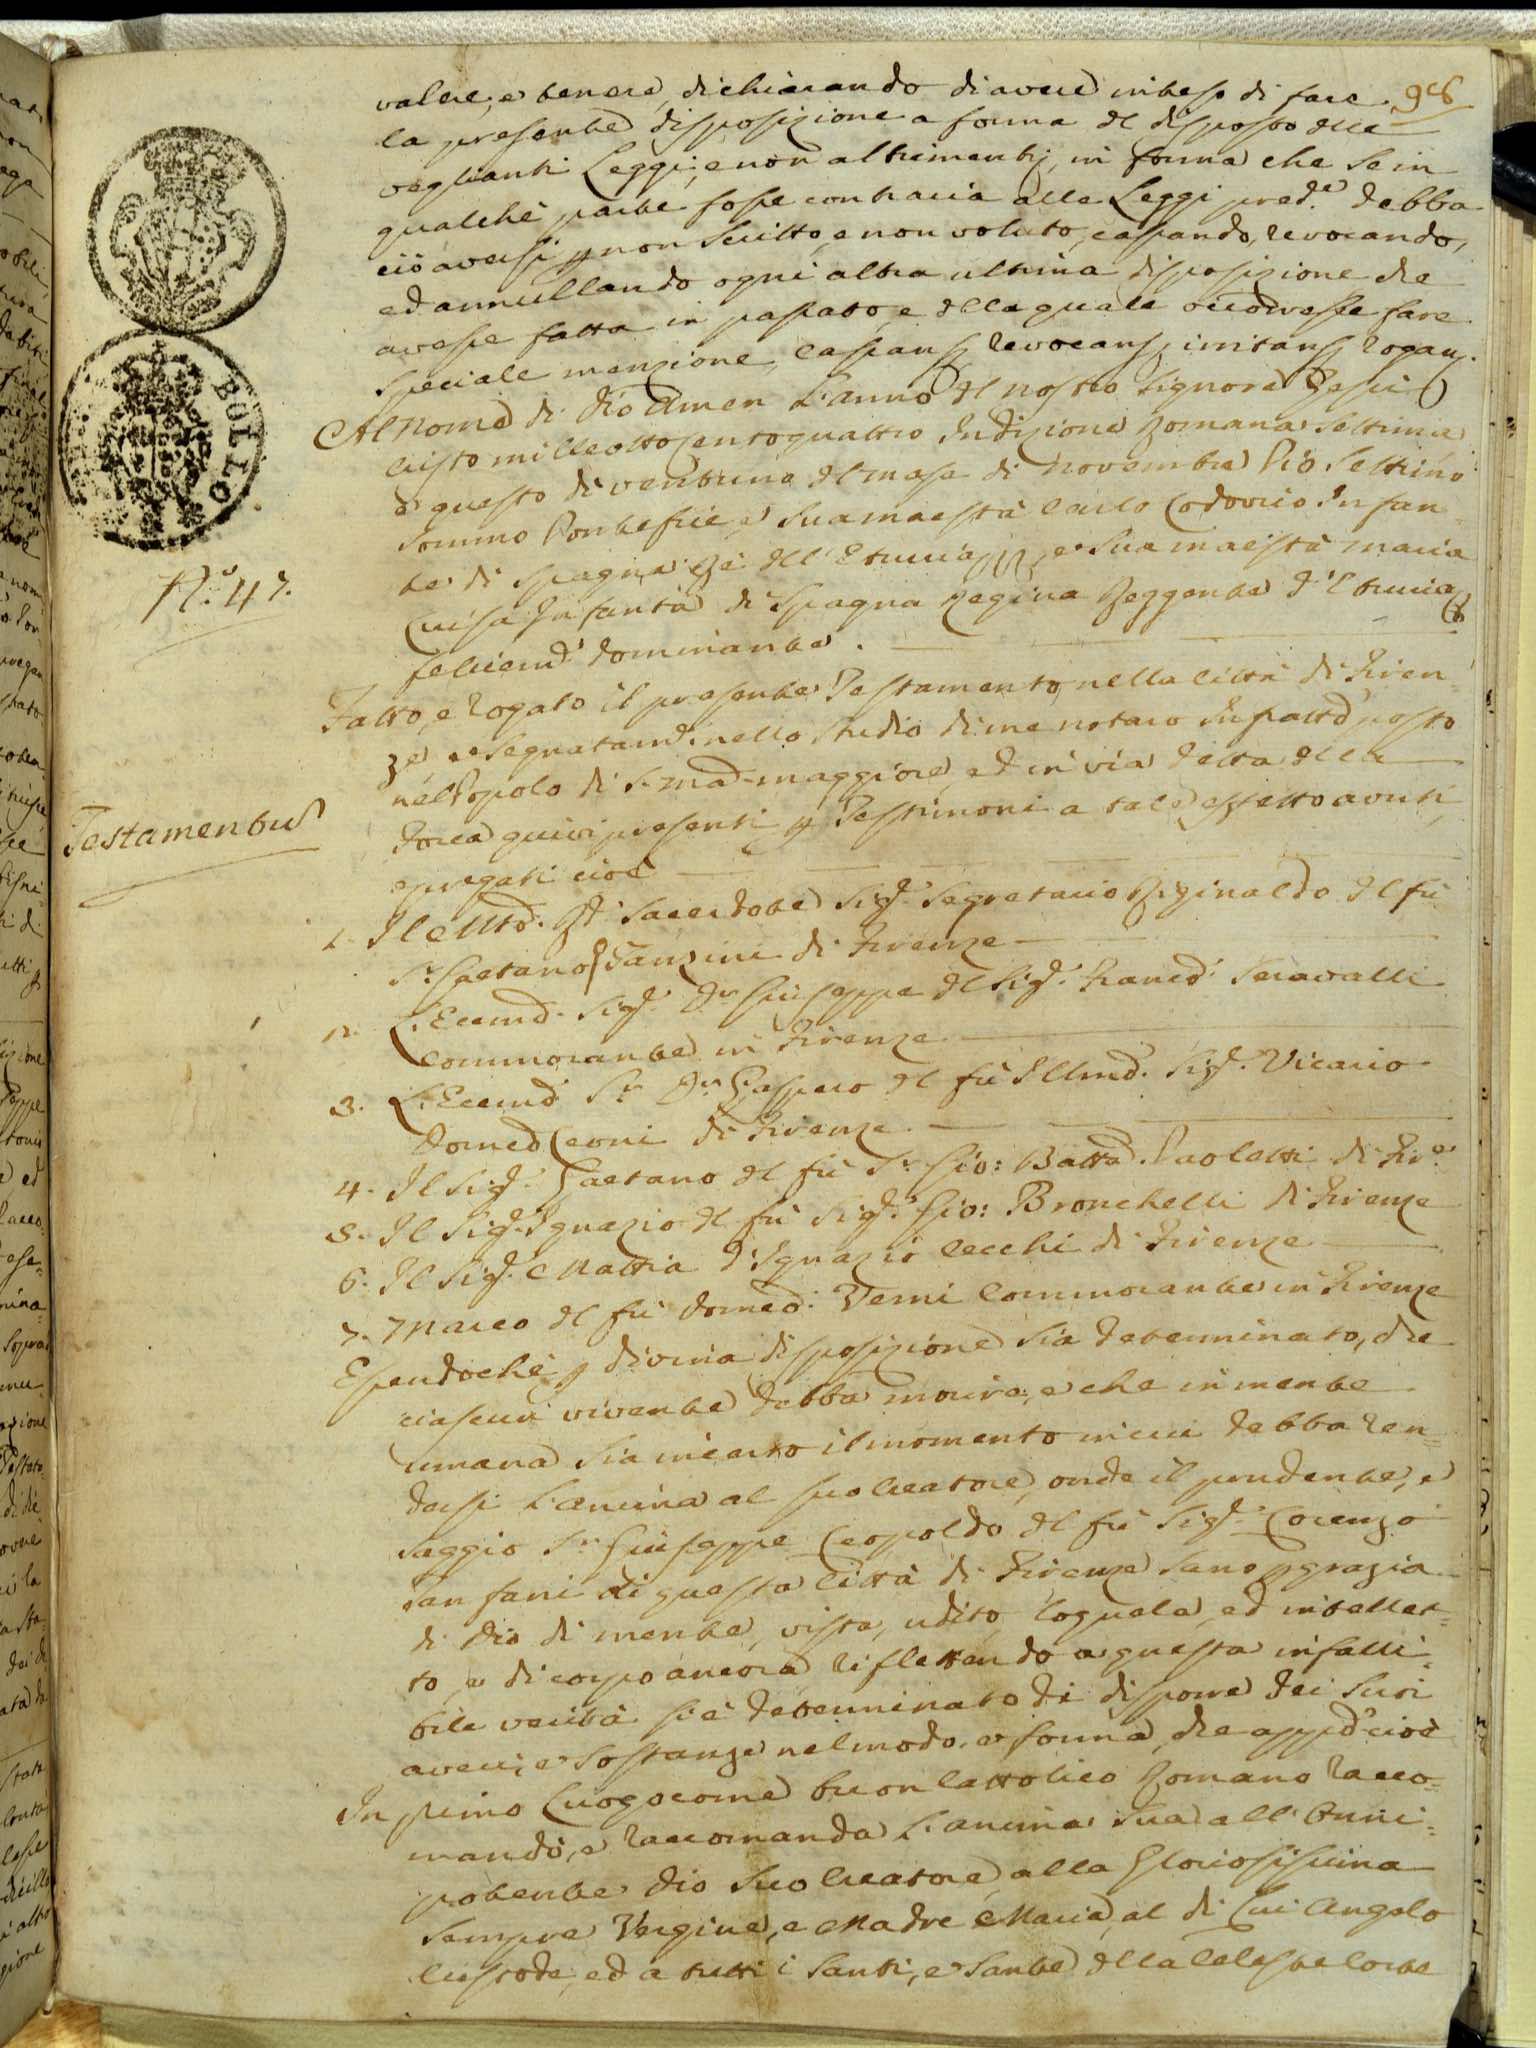 98
valere, e tenere, dichiarando di avere inteso di fare
la presente disposizione a forma del disposto delle
veglianti Leggi, e non altrimenti, in forma che se in
qualche parte fosse contraria alle Leggi pred.e debba
ciò aversi p non scritto, e non voluto, cassando, revocando,
ed annullando ogni altra ultima disposizione che
avesse fatta in passato, e della quale occorresse fare
speciale menzione, cassans, revocans, irritans, rogans.
Al Nome di Dio Amen L'anno del nostro Signore Gesù
Cristo milleottocentoquattro Indizione Romana settima
e questo dì ventuno del mese di Novembre Pio Settimo
Sommo Pontefice, e Sua maestà Carlo Lodovico Infan-
te di Spagna Rè dell'Etruria, e Sua maestà maria
Luisa Infanta di Spagna Regina Reggente d'Etruria
felicem.e dominante.
Fatto, e rogato il presente Testamento nella Città di Firen-
ze e segnatam.e nello studio di me notaro Infratto posto
nel Popolo di S. Ma. maggiore, ed in via detta della
Forca quivi presenti p Testimoni a tale effetto avuti,
e pregati cioè
1. Il Molto R.do Sacerdote Sig.r Segretario Rejinaldo del fù
S.r Gaetano Tanzini di Firenze
2. L'Eccmo. Sig.r D.r Giuseppe del Sig.r Franco. Seravalli
Commorante in Firenze
3. L'Eccmo S.r D.r Gasparo del fù Illmo. Sig.r Vicario
Domco Leoni di Firenze
4. Il Sig.r Gaetano del fù S.r Gio: Batta. Paoletti di Fir.e
5. Il Sig.r Ignazio del fù Sig.r Gio: Bronchelli di Firenze
6. Il Sig.r Mattia d'Ignazio Cecchi di Firenze
7. Marco del fù Domco. Verni Commorante in Firenze
Essendochè p divina disposizione sia determinato, che
ciascun vivente debba morire, e che in mente
umana sia incerto il momento in cui debba ren-
dersi l'anima al suo Creatore, onde il prudente, e
saggio S.r Giuseppe Leopoldo del fù Sig.r Lorenzo
Sanfani di questa Città di Firenze sano p grazia
di Dio di mente, vista, udito, loquela, ed intellet-
to, e di corpo ancora riflettendo a questa infalli-
bile verità si è determinato di disporre dei suoi
averi, e sostanze nel modo, e forma, che app.o cioè
In primo Luogo come buon Cattolico Romano racco-
mandò, e raccomanda L'anima sua all'Onni-
potente Dio suo Creatore, alla Gloriosissima
sempre Vergine, e Madre Maria, al di Lui Angelo
Custode, ed a tutti i Santi, e Sante della Celeste Corte
BOLLO
N.o 47.
Testamentum